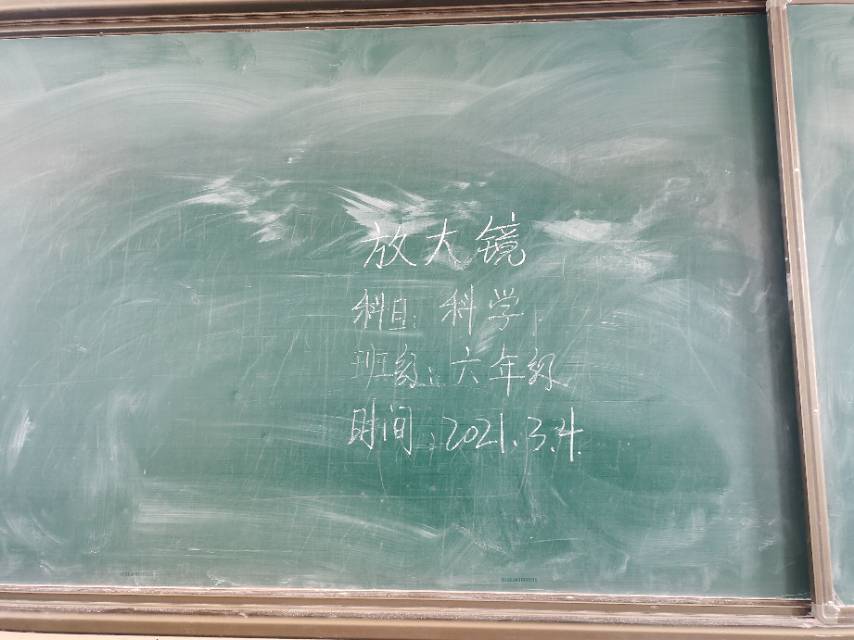 放大镜
科目：科学
班级：六年级
时间：2021.3.4.